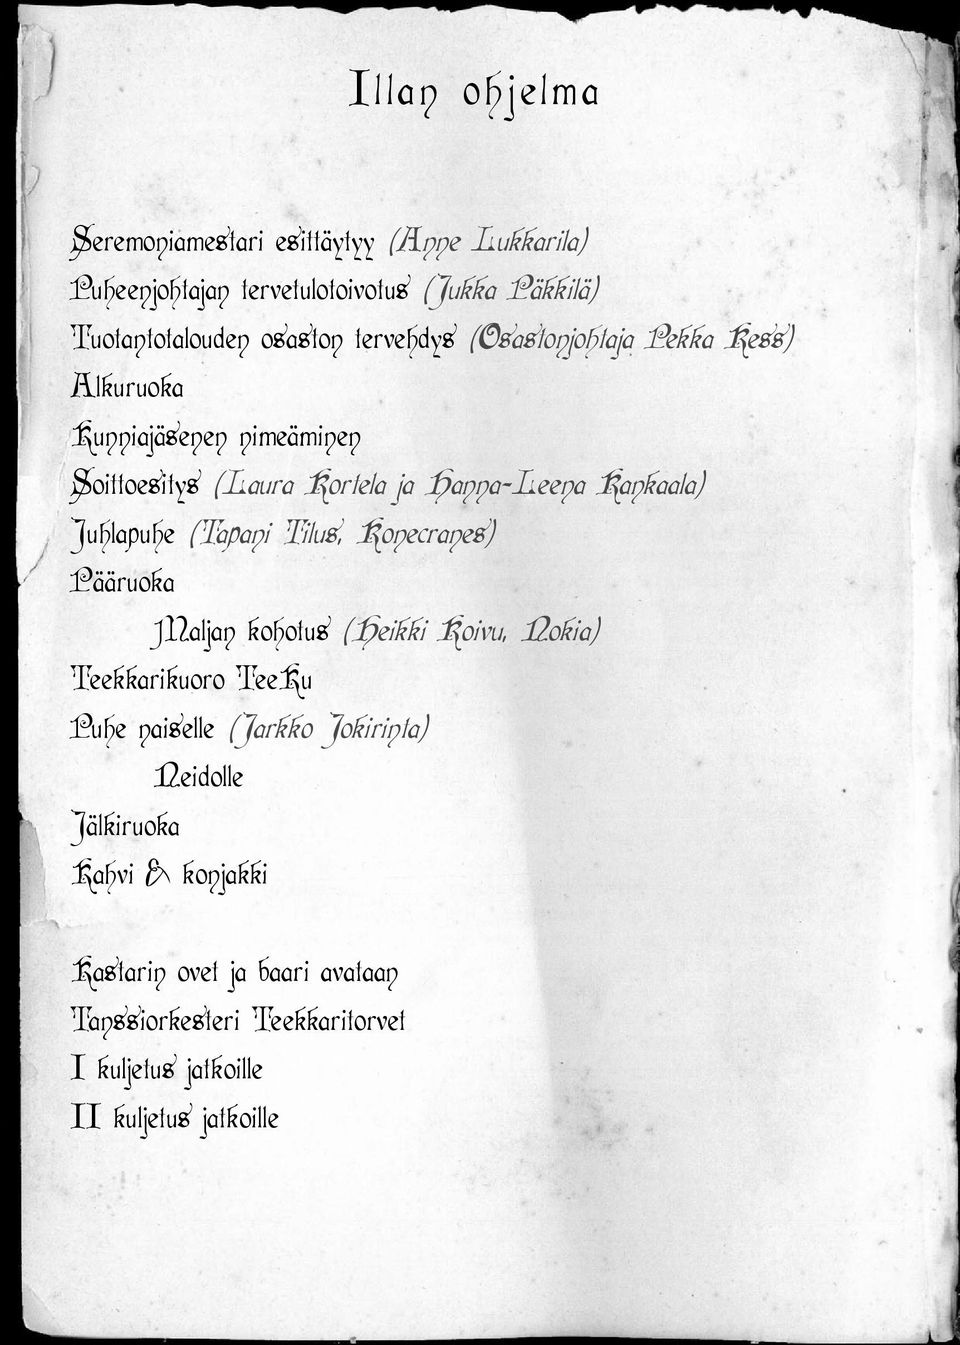 Illan ohjelma
Seremoniamestari esittäytyy (Anne Lukkarila)
Puheenjohtajan tervetulotoivotus (Jukka Päkkilä)
Tuotantotalouden osaston tervehdys (Osastonjohtaja Pekka Kess)
Alkuruoka
Kunniajäsenen nimeäminen
Soittoesitys (Laura Kortela ja Hanna-Leena Kankaala)
Juhlapuhe (Tapani Tilus, Konecranes)
Pääruoka
Maljan kohotus (Heikki Koivu, Nokia)
Teekkarikuoro TeeKu
Puhe naiselle (Jarkko Jokirinta)
Neidolle
Jälkiruoka
Kahvi & konjakki
Kastarin ovet ja baari avataan
Tanssiorkesteri Teekkaritorvet
I kuljetus jatkoille
II kuljetus jatkoille